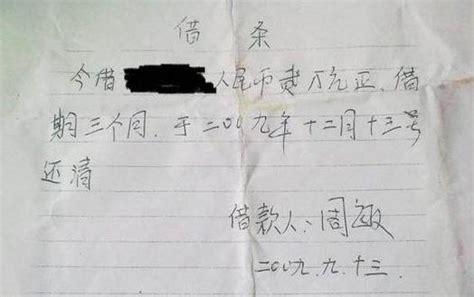 借条
今借人民币贰万元正.借
期三个月.于二00九年十二月十三号
还清
借款人:周敏
二00九.九.十三.